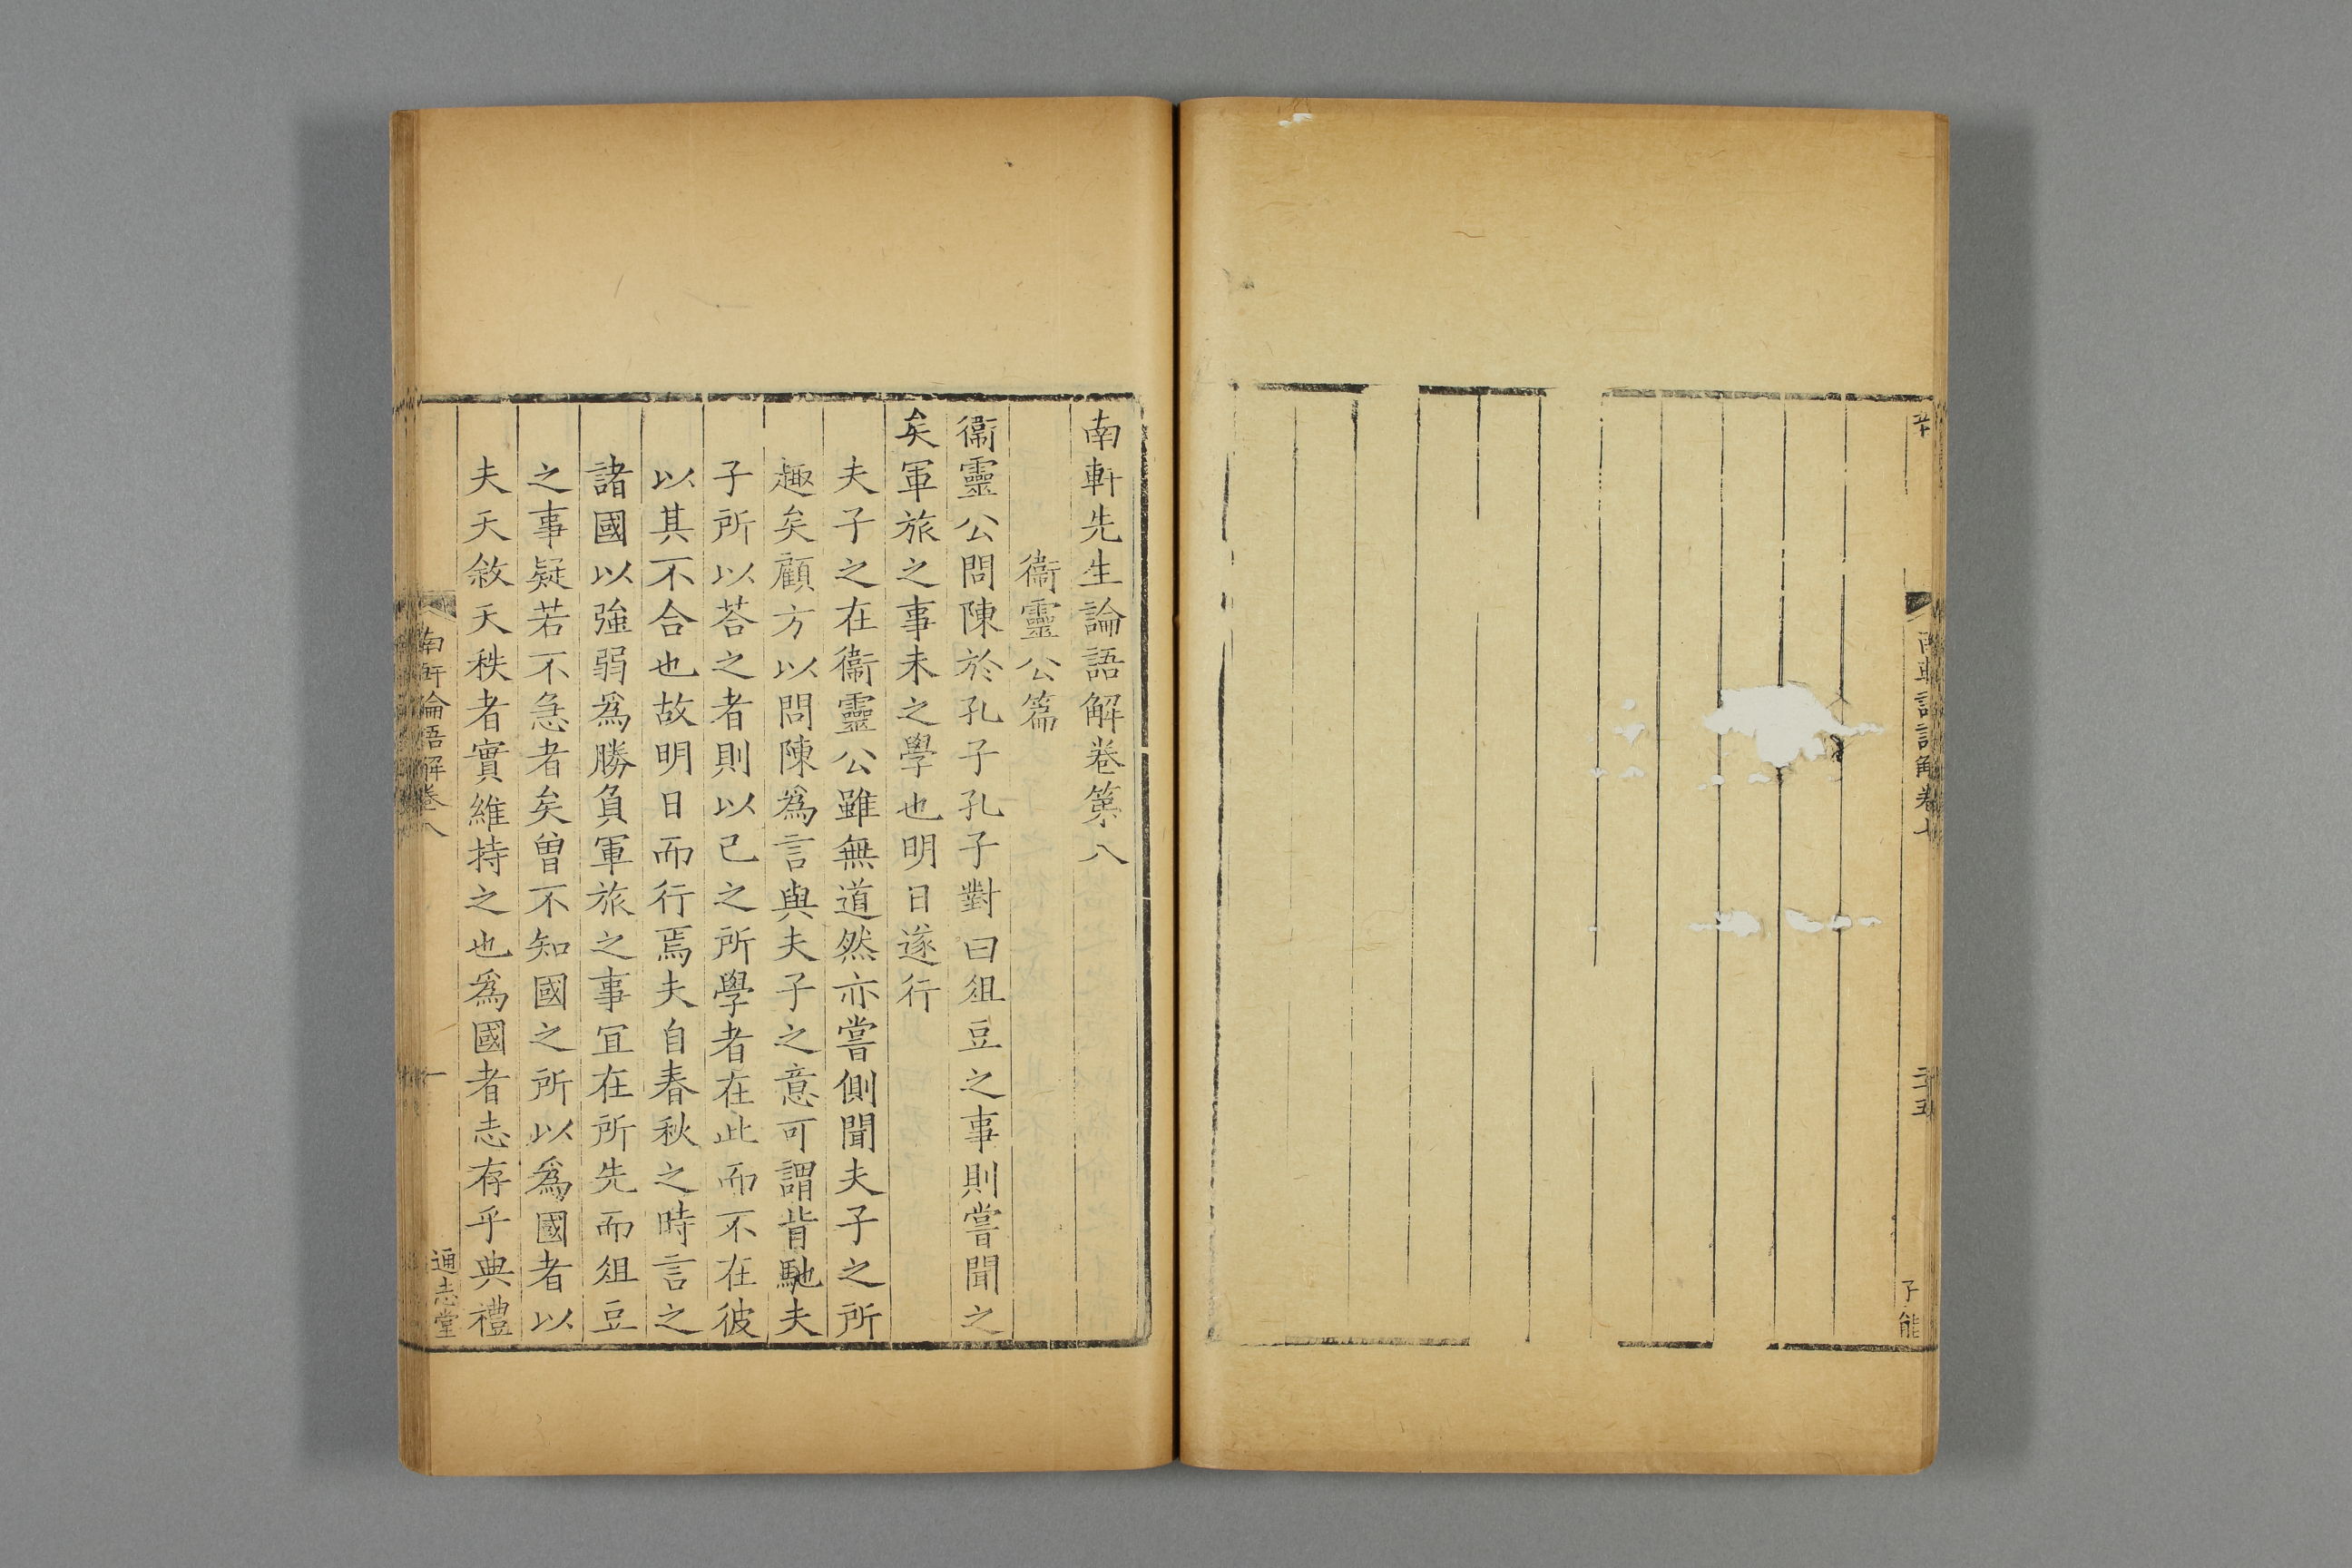 南軒先生論語解卷第八
衞靈公篇
衞靈公問陳於孔子孔子對曰俎豆之事則嘗聞之
矣軍旅之事未之學也明日遂行
夫子之在衞靈公雖無道然亦嘗側聞夫子之所
趣矣顧方以問陳爲言與夫子之意可謂背馳夫
子所以荅之者則以已之所學者在此而不在彼
以其不合也故明日而行焉夫自春秋之時言之
諸國以強弱爲勝負軍旅之事冝在所先而俎豆
之事疑若不急者矣曽不知國之所以爲國者以
夫天敘天秩者實維持之也爲國者志存乎典禮
南軒論語解卷八
一
通志堂
二十五
子能